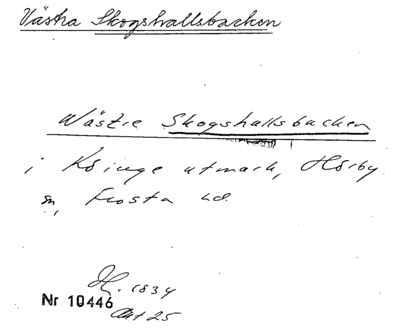 Västra Skogshallsbacken
Wästre Skogshallsbacken
i Köinge utmark, Hörby
sn, Frosta hd.
H. 1834
Nr 10446
Akt 25